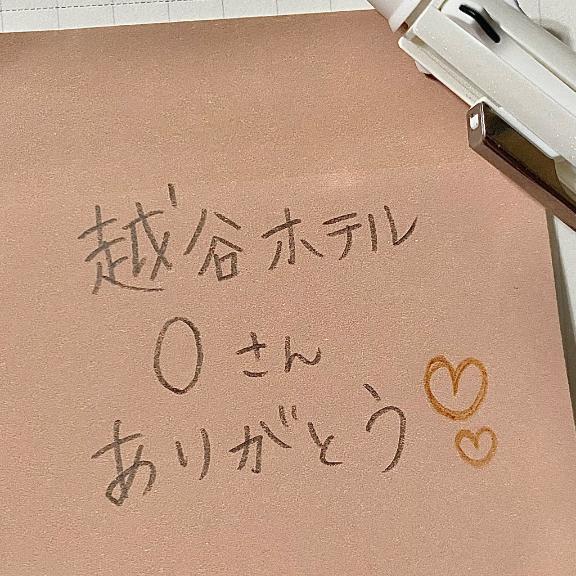 越谷ホテル
Oさん
ありがとう